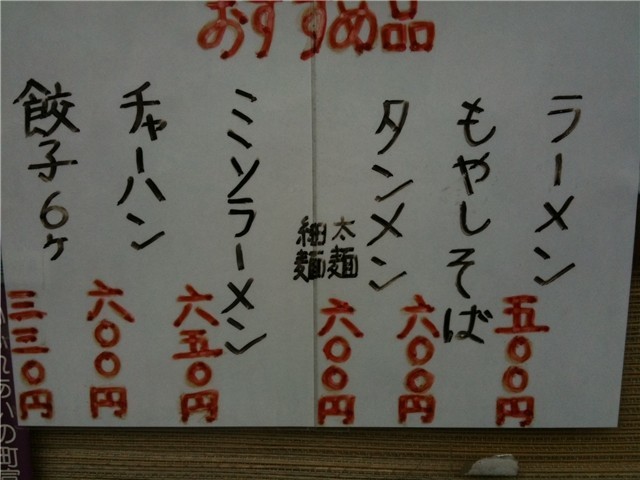 おすすめ品
ラーメン
五〇〇円
もやしそば
六〇〇円
タンメン
太麺
細麺
六〇〇円
ミソラーメン
六五〇円
チャーハン
六〇〇円
餃子6ヶ
三三〇円
れあいの町